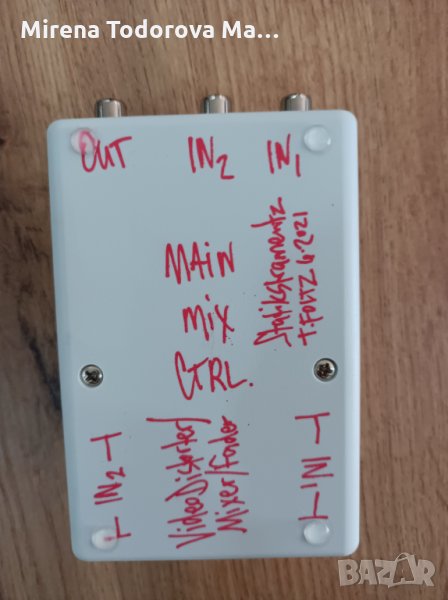 Mirena Todorova Ma...
OUT IN2 IN1
MAIN
MIX
CTRL.
Statikstramentz
T. FOLTZ 6-2021
⊢ IN2 ⊣
Video Distorter/
Mixer/Fader
⊢ IN1 ⊣
BAZAR